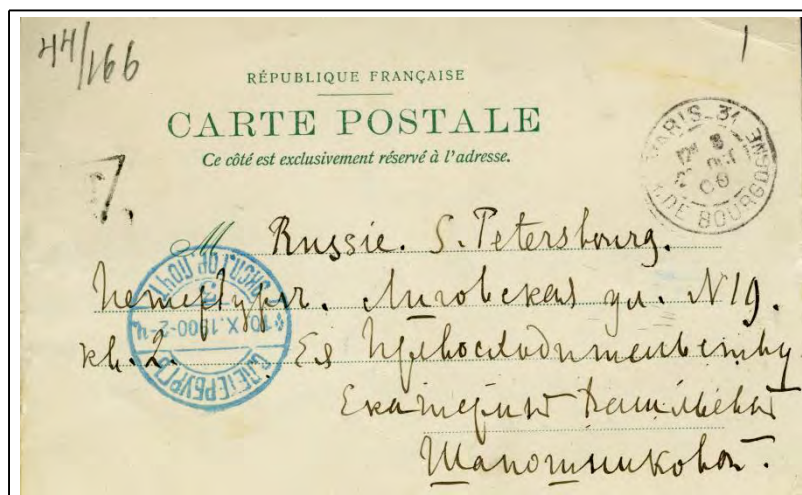 44/166
RÉPUBLIQUE FRANÇAISE
CARTE POSTALE
Ce côté est exclusivement réservé à l'adresse.
PARIS_31
R. DE BOURGOGNE
Russie. S. Petersbourg.
Петербургъ. Лиговская ул. N 19.
кв. 2. Ея Превосходительству
Екатеринѣ Васильевнѣ
Шапошниковой.
10.X.1900
С.ПЕТЕРБУРГЪ